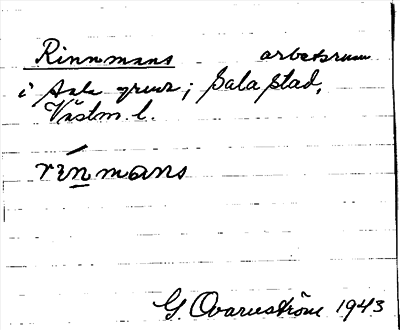 Rinnmans arbetsrum
i Sala gruva; Sala stad,
Västm. l.
rínmans
G. Qvarnström 1943